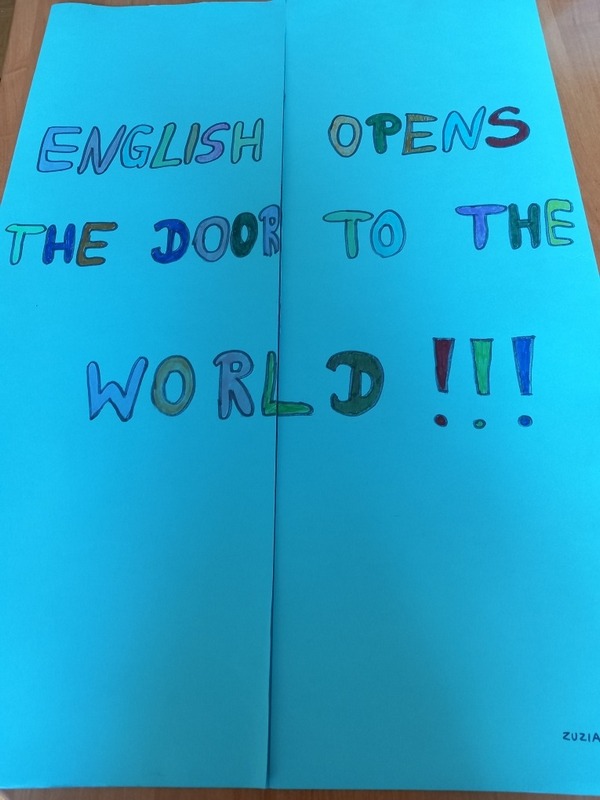 ENGLISH OPENS
THE DOOR TO THE
WORLD !!!
ZUZIA